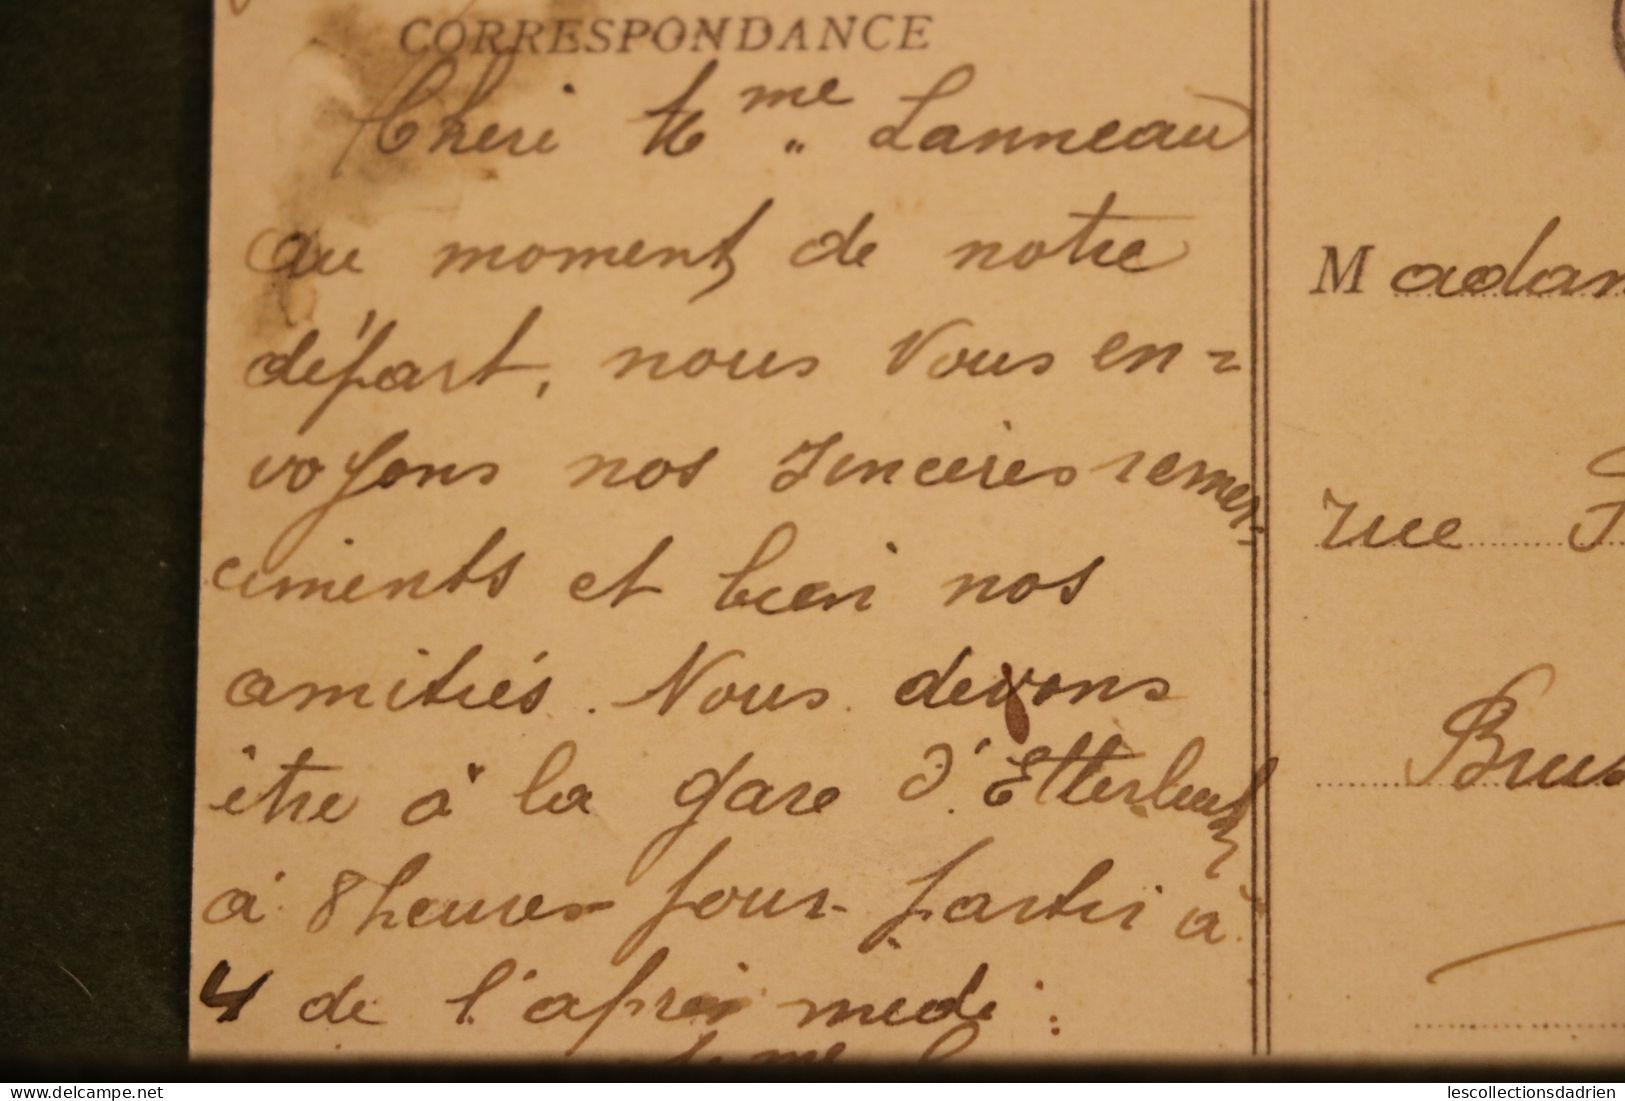 CORRESPONDANCE
Cheri Mme Lanneau
au moment de notre
départ, nous vous en=
voyons nos sincères remer-
ciments et bien nos
amitiés. Nous devons
être à la gare d'Etterbeek
à 8 heures pour partir à
4 de l'après midi :
Madam
rue
Brus
lescollectionsdadrien